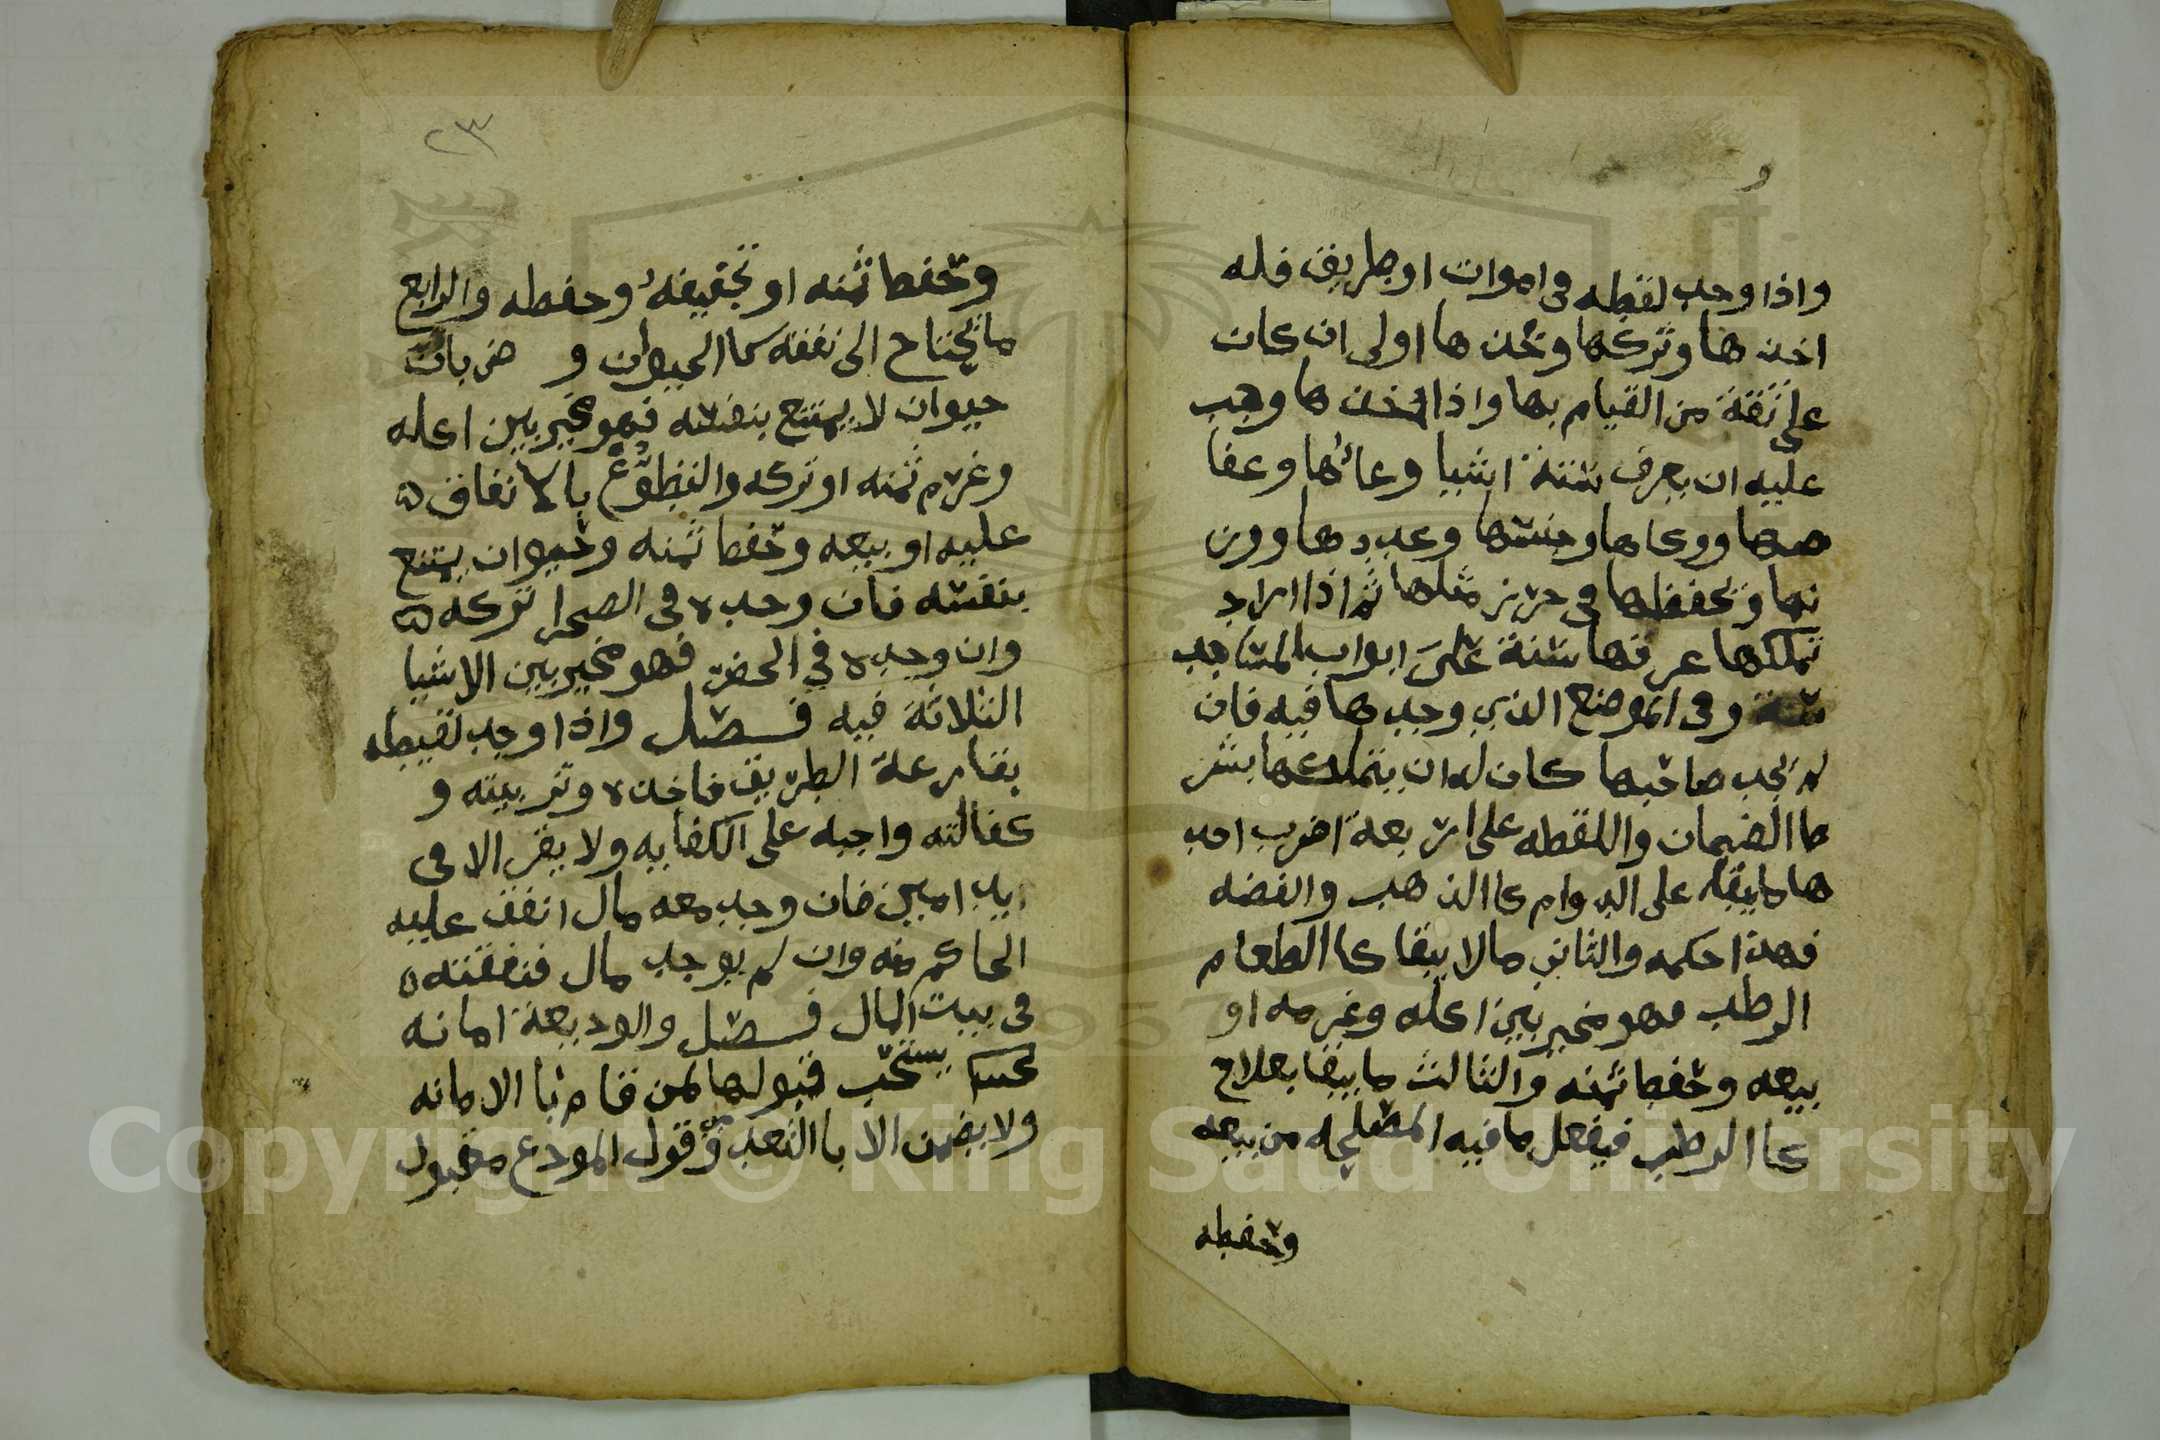 واذا وجد لقطه فى اموات او طريق فله
اخذ ها وتركها وخذ ها اولى ان كان
على ثقة من القيام بها واذا اخذ ها وجب
عليه ان يعرف ستة اشيا وعائها وعفا
صها ووكاها وجنسها وعدد ها ووز
نها ويحفظها فى حرز مثلها ثم اذا اراد
تملكها عرفها سنة على ابواب المساجد
سنة وفى الموضع الذي وجد ها فيه فان
لم يجد صاحبها كان له ان يتملكها بشر
ط الضمان واللقطه على اربعة اضرب احد
ها ما يبقا على الدوام كا الذهب والفضه
فهذا حكمه والثاني ما لا يبقا كا الطعام
الرطب فهو مخير بين اكله وغرمه او
بيعه وحفظ ثمنه والثالث ما يبقا بعلاج
كا الرطب فيفعل ما فيه المصلحه من بيعه
وحفظه
٢٣
وحفظ ثمنه او تجفيفه وحفظه والرابع
ما يحتاج الى نفقه كا الحيوان و ضربان
حيوان لا يمتنع بنفسه فهو مخير بين اكله
وغرم ثمنه او تركه والتطوع بالا نفاق ه
عليه او بيعه وحفظ ثمنه وحيوان يمتنع
بنفسه فان وجده فى الصحرا تركه ه
وان وجده في الحضر فهو مخير بين الاشيا
الثلاثة فيه فصل واذا وجد لقيط
بقارعة الطريق فاخذه وتربيته و
كفالته واجبه على الكفايه ولا يقر الا فى
يد امين فان وجد معه مال انفق عليه
الحاكم منه وان لم يوجد مال فنفقته ه
فى بيت المال فصل والوديعة امانه
يستحب قبولها لمن قام با الامانه
ولا يضمن الا با التعد وقول المودع مقبول
Copyright © King Saud University